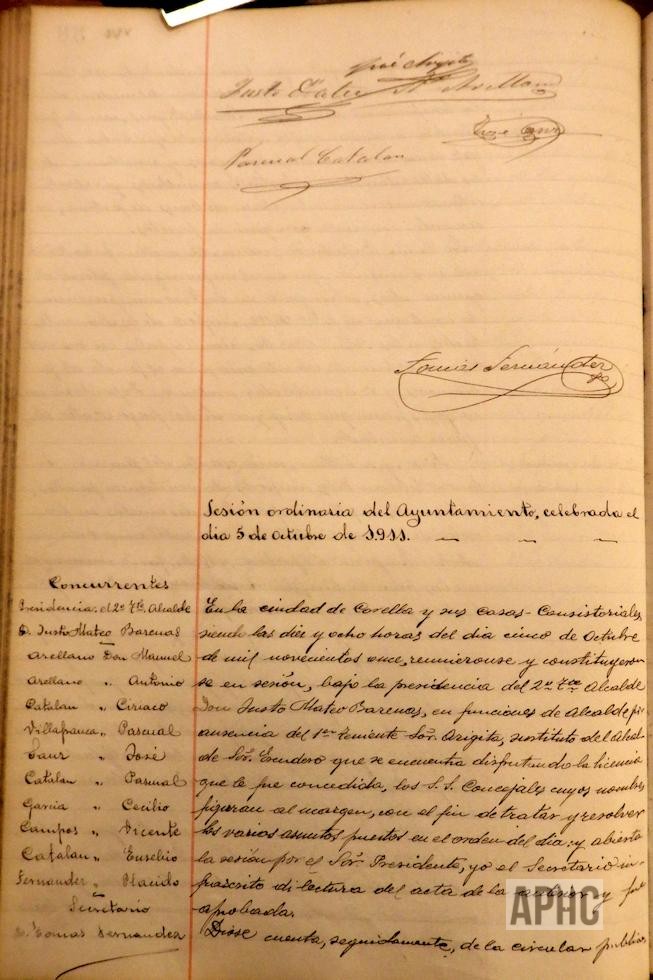 José
Justo
Arellano
José
Pascual Catalan
Tomás Fernández
Sesión ordinaria del Ayuntamiento, celebrada el
dia 5 de octubre de 1911.
Concurrentes
Presidencia: el 2º Tte. Alcalde
D. Justo Mateo Barenas
Arellano Don Manuel
Arellano " Antonio
Catalan " Ciriaco
Villafranca " Pascual
Sanz " José
Catalan " Pascual
Garcia " Cecilio
Campos " Vicente
Catalan " Eusebio
Fernandez " Placido
Secretario
D. Tomas Fernandez
En la ciudad de Corella y sus casas-Consistoriales,
siendo las diez y ocho horas del dia cinco de Octubre
de mil novecientos once, reunieronse y constituyeron-
se en sesión, bajo la presidencia del 2º Tte Alcalde
Don Justo Mateo Barenas, en funciones de Alcalde por
ausencia del 1er Teniente Sor. Arigita, sustituto del Alcal-
de Sor. Escudero que se encuentra disfrutando la licencia
que le fue concedida, los S.S. Concejales cuyos nombres
figuran al margen, con el fin de tratar y resolver
los varios asuntos puestos en el orden del dia; y abierta
la sesión por el Sor. Presidente, yo el Secretario in-
frascrito di lectura del acta de la anterior y fue
aprobada.
Diose cuenta, seguidamente, de la circular publica
APHC